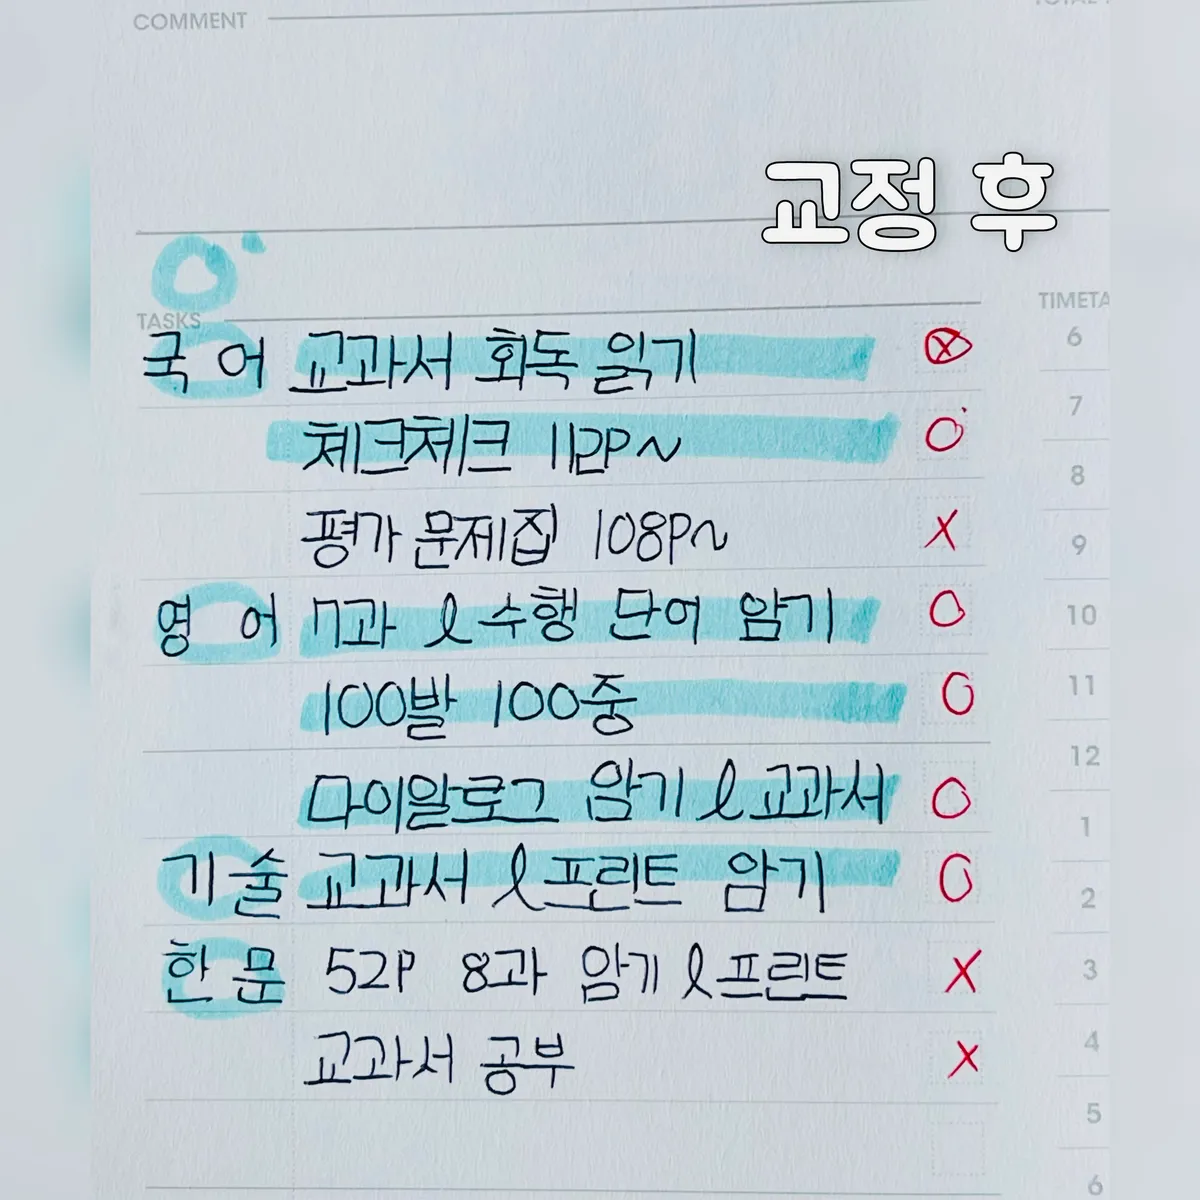 COMMENT
교정 후
TASKS
TIMETA
국어 교과서 회독 읽기
6
체크체크 112P~
7
8
평가 문제집 108P~
9
영어 7과 & 수행 단어 암기
10
100발 100중
11
12
다이알로그 암기 & 교과서
1
기술 교과서 & 프린트 암기
2
한문 52P 8과 암기 & 프린트
3
교과서 공부
4
5
6